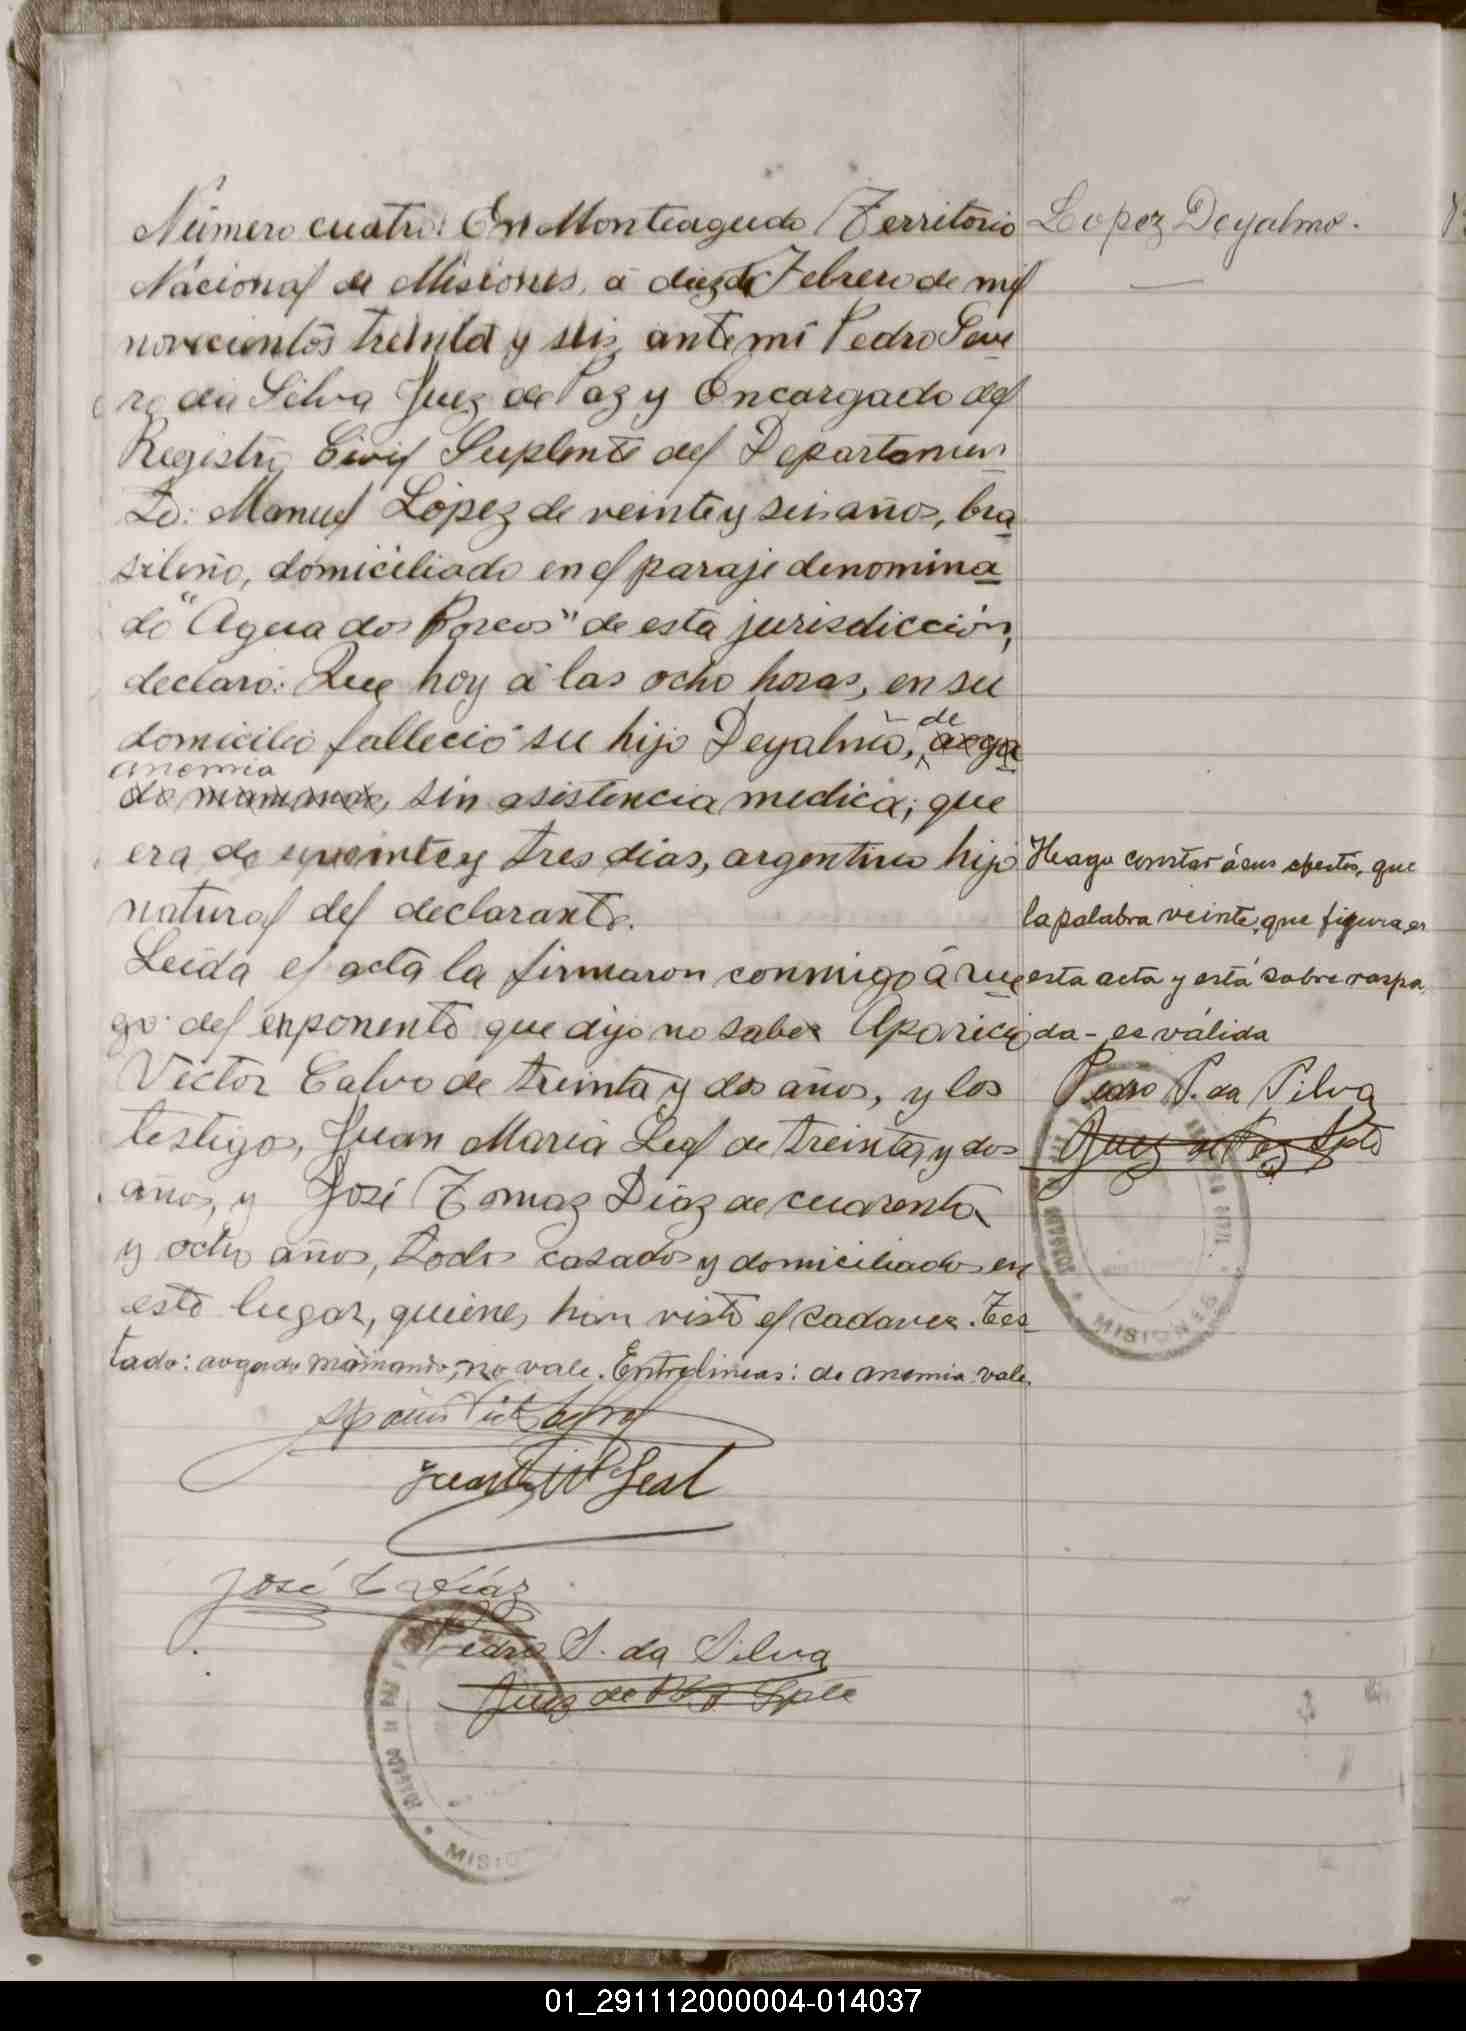 Número cuatro: En Monteagudo Territorio
Nacional de Misiones, á diez de Febrero de mil
novecientos treinta y seis, ante mí Pedro Seve
ro da Silva Juez de Paz y Encargado del
Registro Civil Suplente del Departamen
to: Manuel López de veinte y seis años, bra
sileño, domiciliado en el paraje denomina
do "Agua dos Porcos" de esta jurisdicción,
declaró: Que hoy á las ocho horas, en su
de
domicilio falleció su hijo Deyalmo, aoga
anemia
do mamando, sin asistencia medica; que
era de veinte y tres dias, argentino hijo
natural del declarante.
Leída el acta la firmaron conmigo á rue
go del exponente que dijo no saber Aparicio
Víctor Calvo de treinta y dos años, y los
testigos, Juan María Leal de treinta y dos
años, y José Tomaz Díaz de cuarenta
y ocho años, todos casados y domiciliados en
este lugar, quienes han visto el cadaver. Tes
tado: aogado mamando, no vale. Entrelineas: de anemia vale.
Juan M Leal
José T Díaz
Pedro S. da Silva
Juez de Paz Splte
MISIO
Lopez Deyalmo.
Hago constar á sus efectos, que
la palabra veinte, que figura en
esta acta y está sobre raspa
da - es válida
Pedro S. da Silva
Juez de Paz Splte
MISIONES
01_291112000004-014037